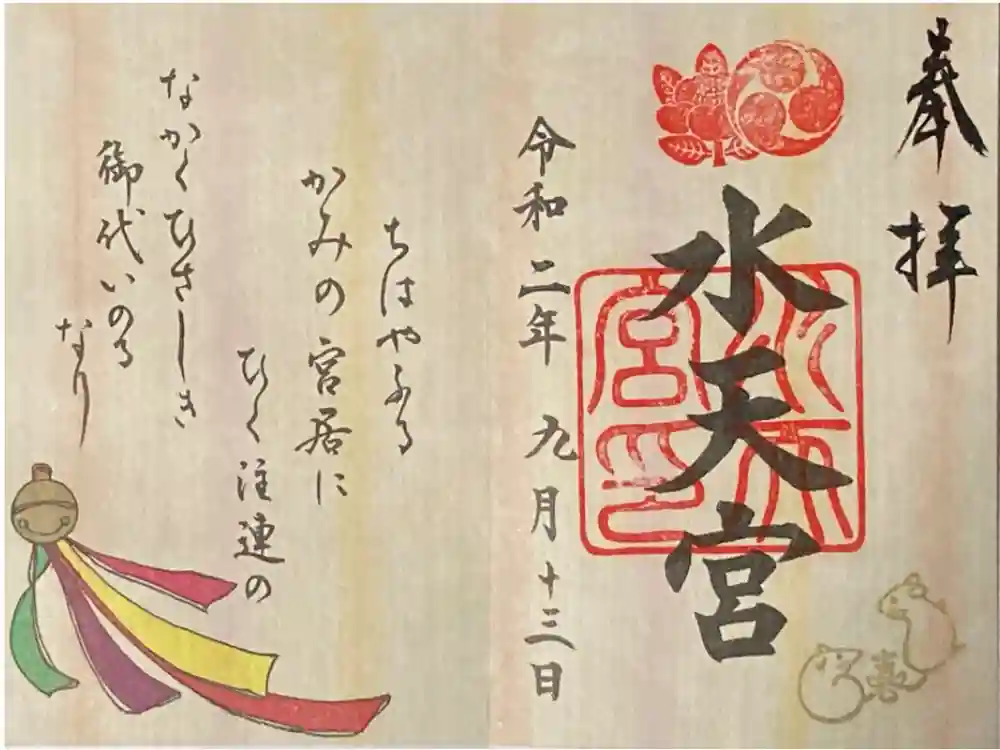 奉拝
水天宮
水天宮印
令和二年 九月十三日
喜
ちはやふる
かみの宮居に
ひく注連の
なかくひさしき
御代いのる
なり